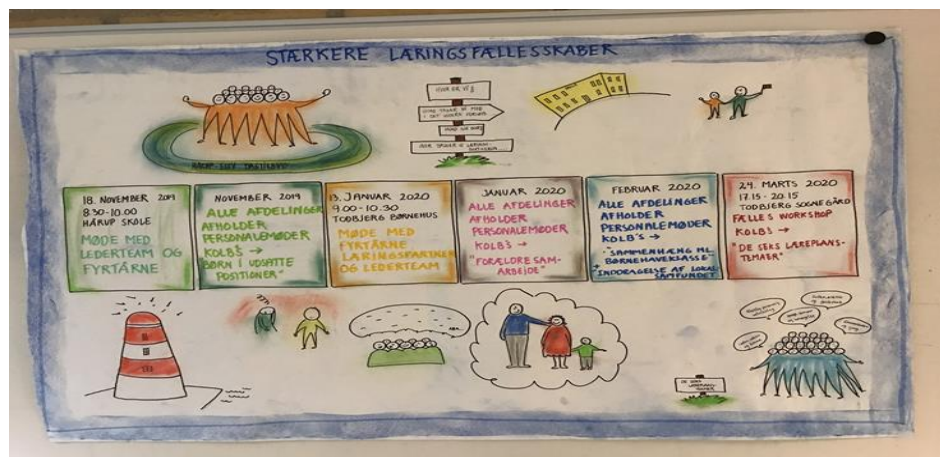 STÆRKERE LÆRINGSFÆLLESSKABER
18. NOVEMBER 2019
8.30-10.00
HÅRUP SKOLE
MØDE MED
LEDERTEAM OG
FYRTÅRNE
NOVEMBER 2019
ALLE AFDELINGER
AFHOLDER
PERSONALEMØDER
KOLB'S →
BØRN I UDSATTE
POSITIONER"
13. JANUAR 2020
9.00-10.30
TODBJERG BØRNEHUS
MØDE MED
FYRTÅRNE
LÆRINGSPARTNER
OG LEDERTEAM
JANUAR 2020
ALLE AFDELINGER
AFHOLDER
PERSONALEMØDER
KOLB'S →
"FORÆLDRESAM-
ARBEJDE"
FEBRUAR 2020
ALLE AFDELINGER
AFHOLDER
PERSONALEMØDER
KOLB'S →
"SAMMENHÆNG ML.
BØRNEHAVEKLASSE"
+ INDDRAGELSE AF LOKAL
SAMFUNDET
24. MARTS 2020
17.15 - 20.15
TODBJERG SOGNEGÅRD
FÆLLES WORKSHOP
KOLB'S →
"DE SEKS LÆREPLANS-
TEMAER"
DE SEKS
LÆREPLANS-
TEMAER